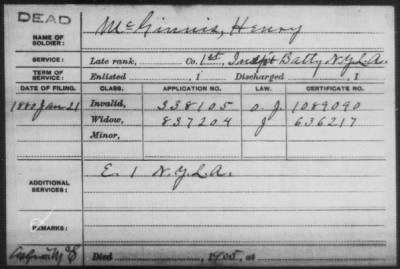 DEAD
NAME OF SOLDIER: McGinnis, Henry
SERVICE: Late rank, Co. 1st, Indpt Batty N.Y.L.A.
TERM OF SERVICE: Enlisted , 1 Discharged , 1
DATE OF FILING. CLASS. APPLICATION NO. LAW. CERTIFICATE NO.
1880 Jan 21 Invalid, 338105 O. J. 1089090
Widow, 837204 J 636217
Minor,
ADDITIONAL SERVICES: E. 1 N.Y.L.A.
REMARKS:
Died 1905, at